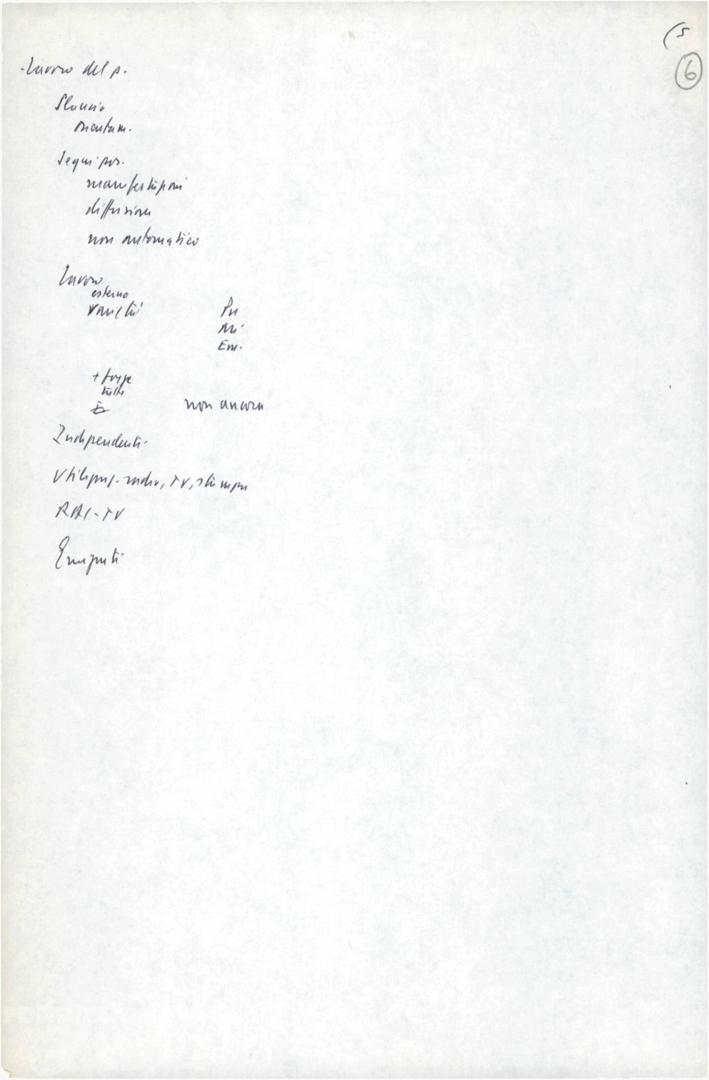 (5
6
- Lavoro del p.
Slancio
orientam.
Segni pos.
manifestazioni
diffusione
non automatico
Lavoro
esterno
Pu
Mi
Em.
+ forze
tutte
non ancora
Indipendenti
Utilizzaz. radio, TV, stampa
RAI-TV
Emigrati